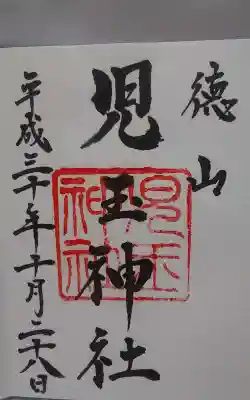 徳山
児玉神社
平成三十年十月二十八日
児玉
神社